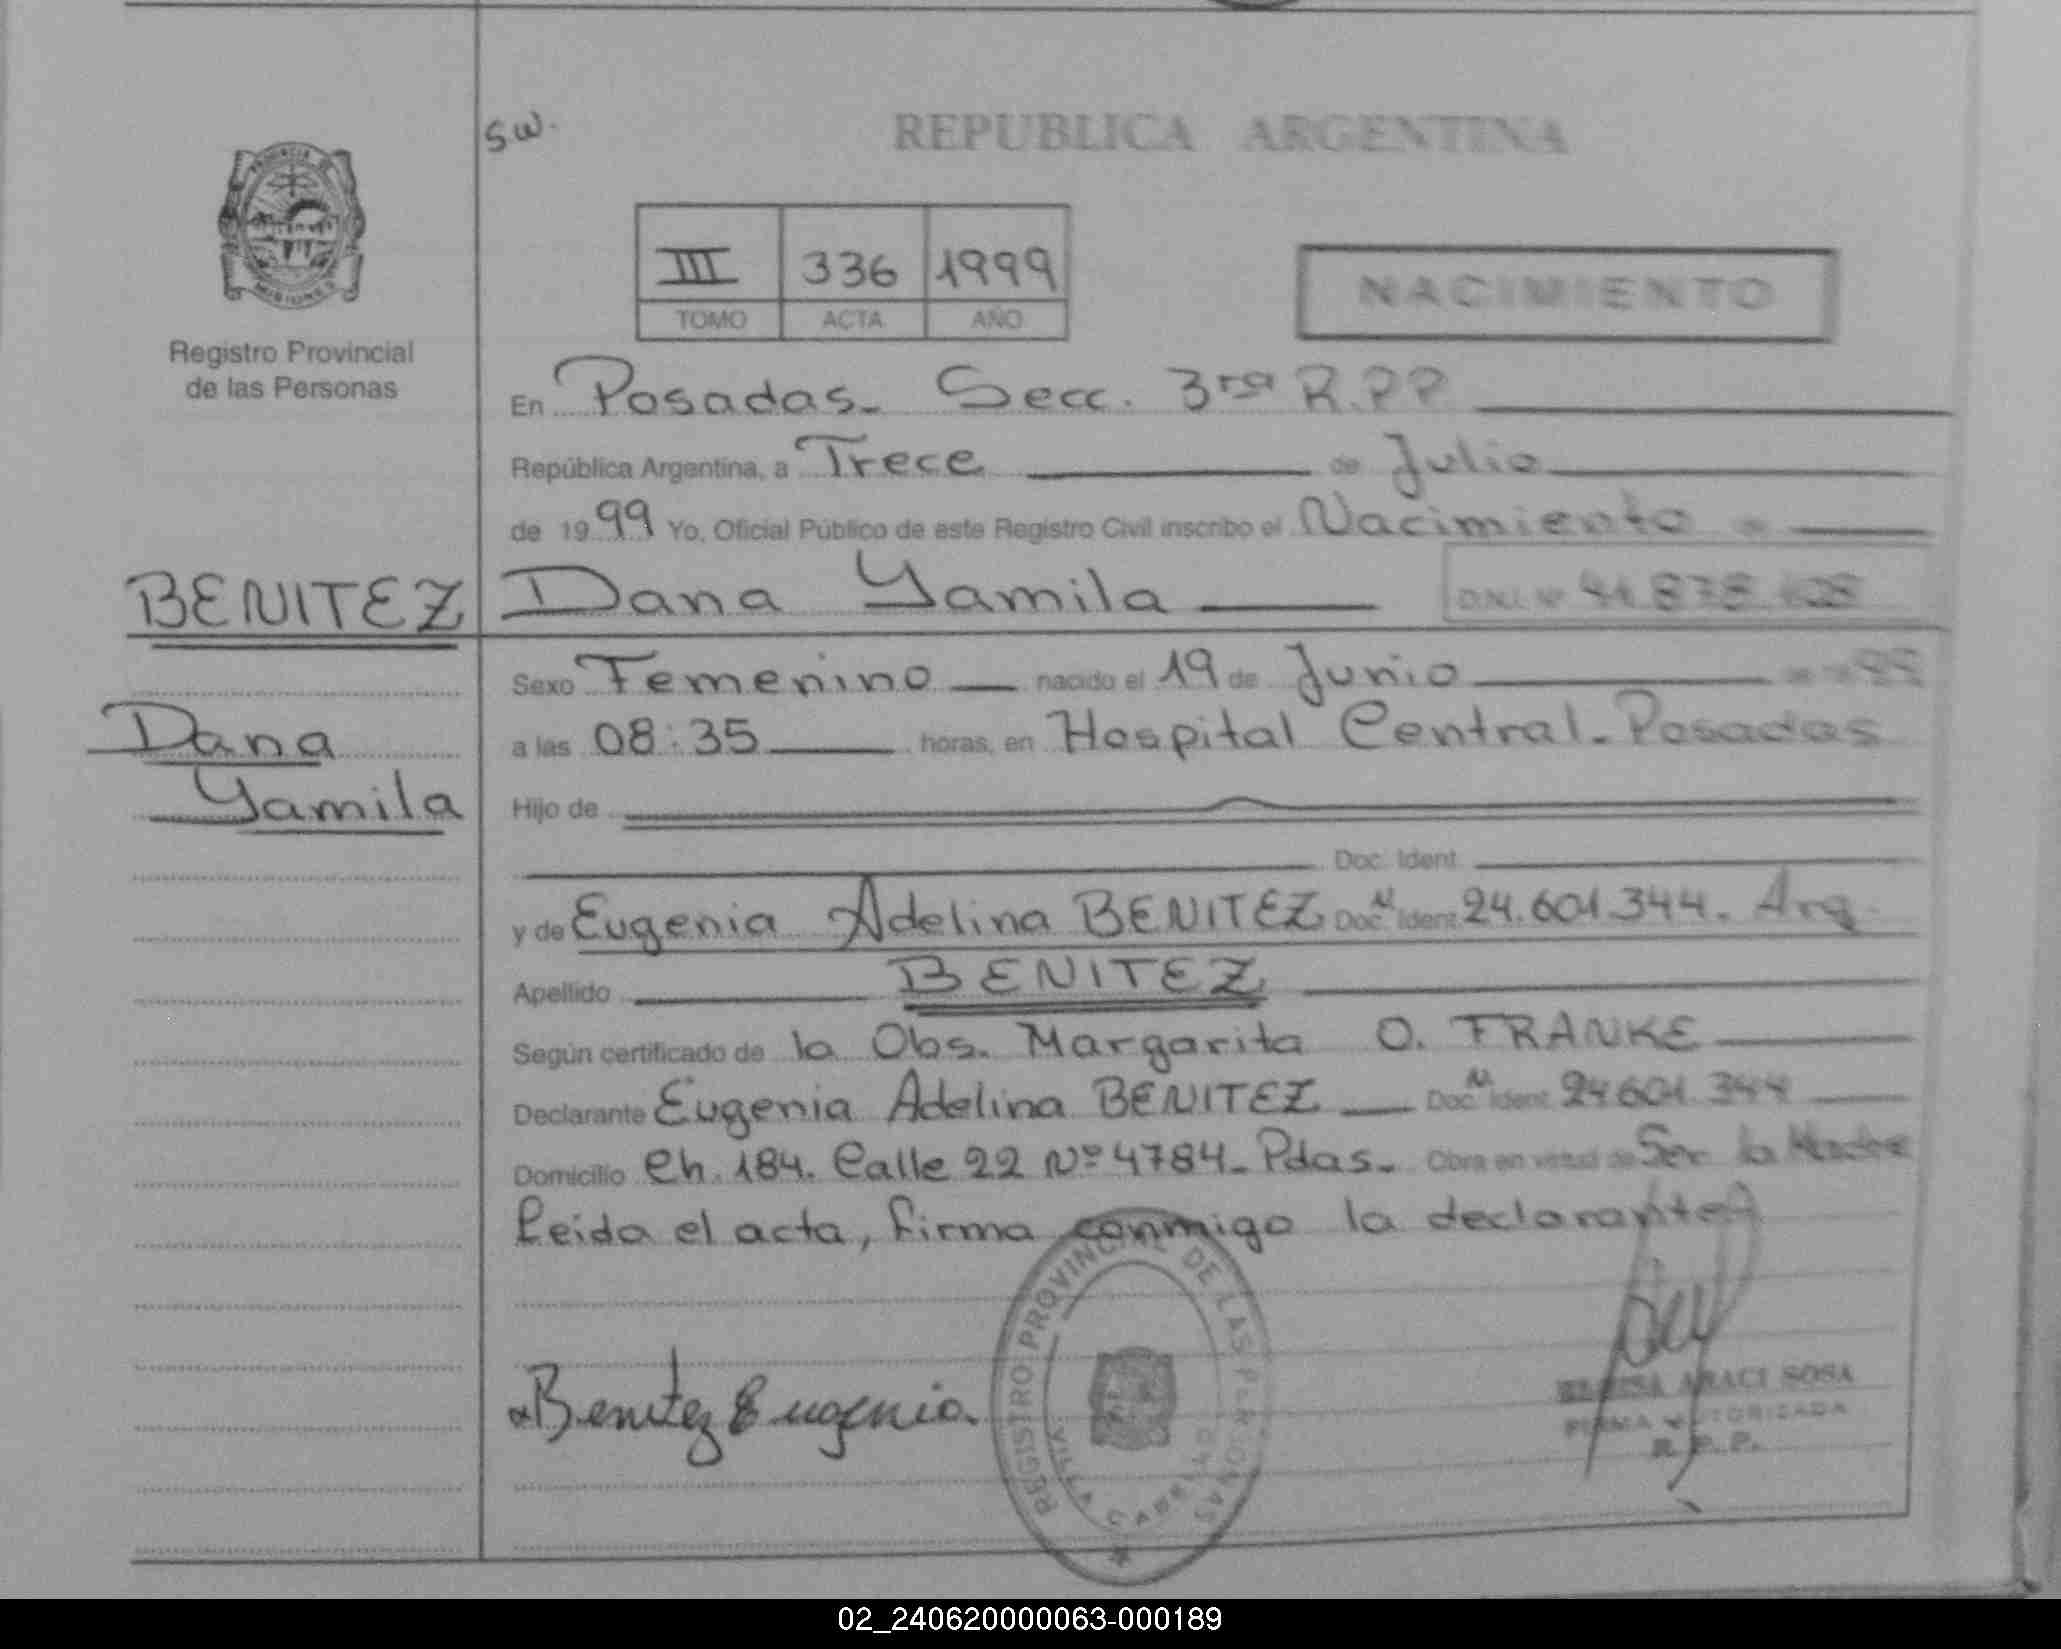 S.W.
REPUBLICA ARGENTINA
PROVINCIA DE
MISIONES
III 336 1999
TOMO ACTA AÑO
NACIMIENTO
Registro Provincial
de las Personas
En Posadas. Secc. 3ra R.P.P
República Argentina, a Trece de Julio
de 1999 Yo, Oficial Público de este Registro Civil inscribo el Nacimiento
BENITEZ Dana Yamila D.N.I. Nº
Sexo Femenino nacido el 19 de Junio
Dana
a las 08:35 horas, en Hospital Central - Posadas
Yamila
Hijo de
Doc. Ident.
y de Eugenia Adelina BENITEZ Doc. N Ident. 24.601.344. Arg.
Apellido BENITEZ
Según certificado de la Obs. Margarita O. FRANKE
Declarante Eugenia Adelina BENITEZ Doc. N Ident. 24.601.344
Domicilio Ch. 184. Calle 22 Nº 4784 - Pdas. Obra en virtud de Ser la Madre
Leida el acta, firma conmigo la declarante
REGISTRO PROVINCIAL DE LAS PERSONAS
VILLA CABELLO
Benitez Eugenia.
ARACI SOSA
FIRMA AUTORIZADA
R.P.P.
02_240620000063-000189